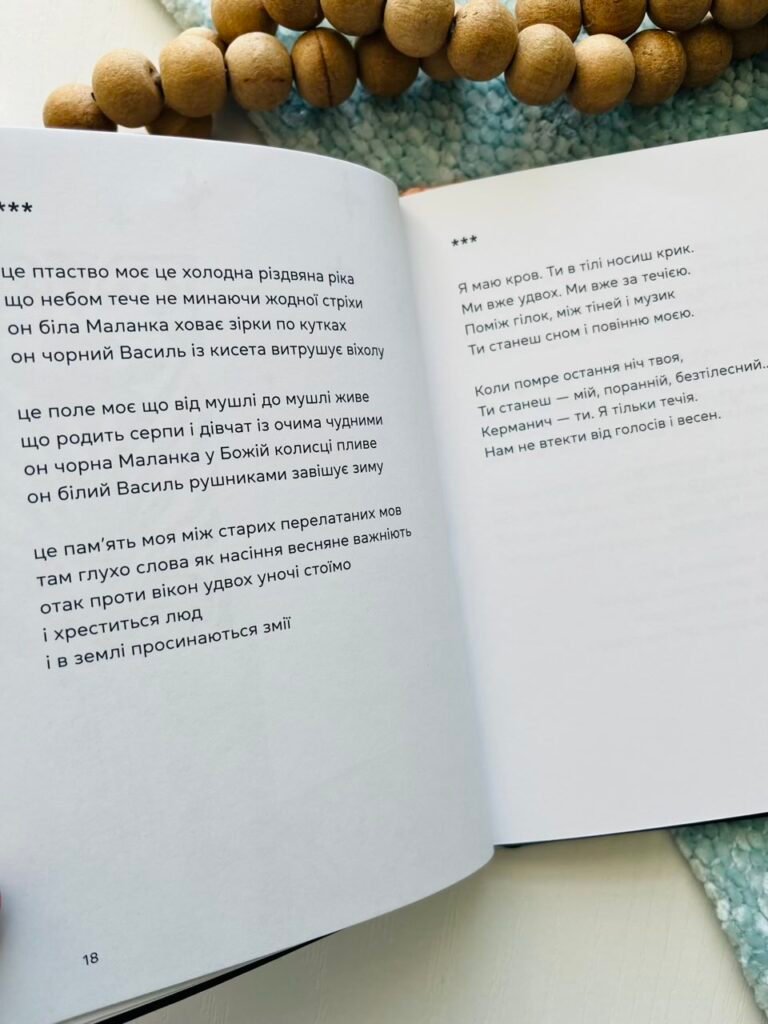 ***
це птаство моє це холодна різдвяна ріка
що небом тече не минаючи жодної стріхи
он біла Маланка ховає зірки по кутках
он чорний Василь із кисета витрушує віхолу
це поле моє що від мушлі до мушлі живе
що родить серпи і дівчат із очима чудними
он чорна Маланка у Божій колисці пливе
он білий Василь рушниками завішує зиму
це пам’ять моя між старих перелатаних мов
там глухо слова як насіння весняне важніють
отак проти вікон удвох уночі стоїмо
і хреститься люд
і в землі просинаються змії
18
***
Я маю кров. Ти в тілі носиш крик.
Ми вже удвох. Ми вже за течією.
Поміж гілок, між тіней і музик
Ти станеш сном і повінню моєю.
Коли помре остання ніч твоя,
Ти станеш — мій, поранній, безтілесний..
Керманич — ти. Я тільки течія.
Нам не втекти від голосів і весен.